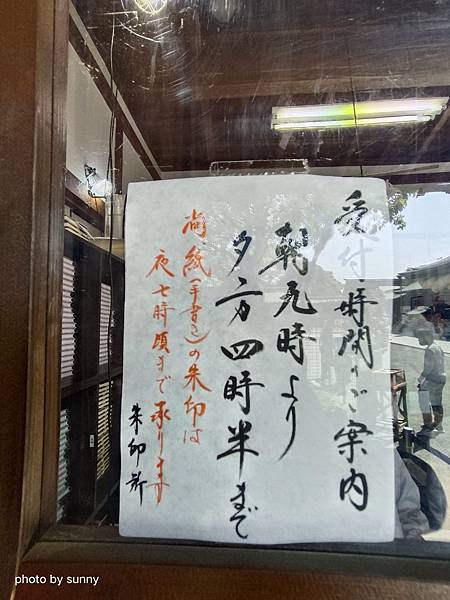 受付時間のご案内
朝九時より
夕方四時半まで
尚、紙(手書き)の朱印は
夜七時頃まで承ります
朱印所
photo by sunny